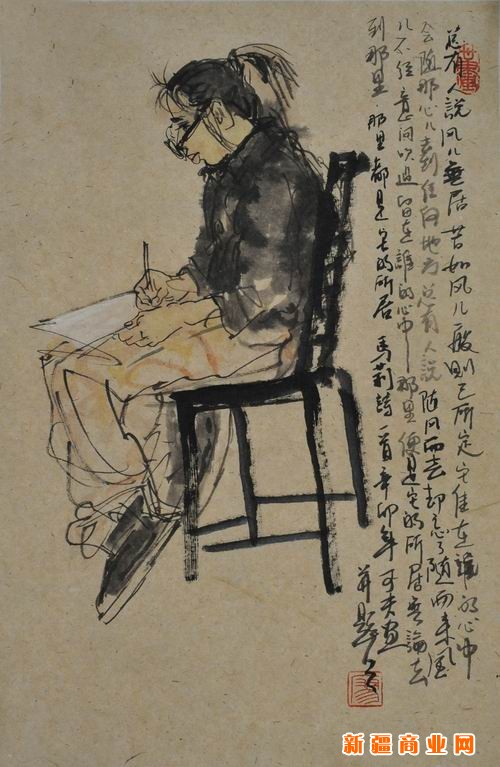 总有人說风儿無居苦如风儿般则已所定它住在誰的心中
会随那心儿去到任何地方总有人說随风而去却忘了随而来風
儿不经意间吹过留在誰的心中那里便是它的所居無論去
到那里那里都是它的所居馬莉詩一首辛卯年可夫画
并题
新疆商业网